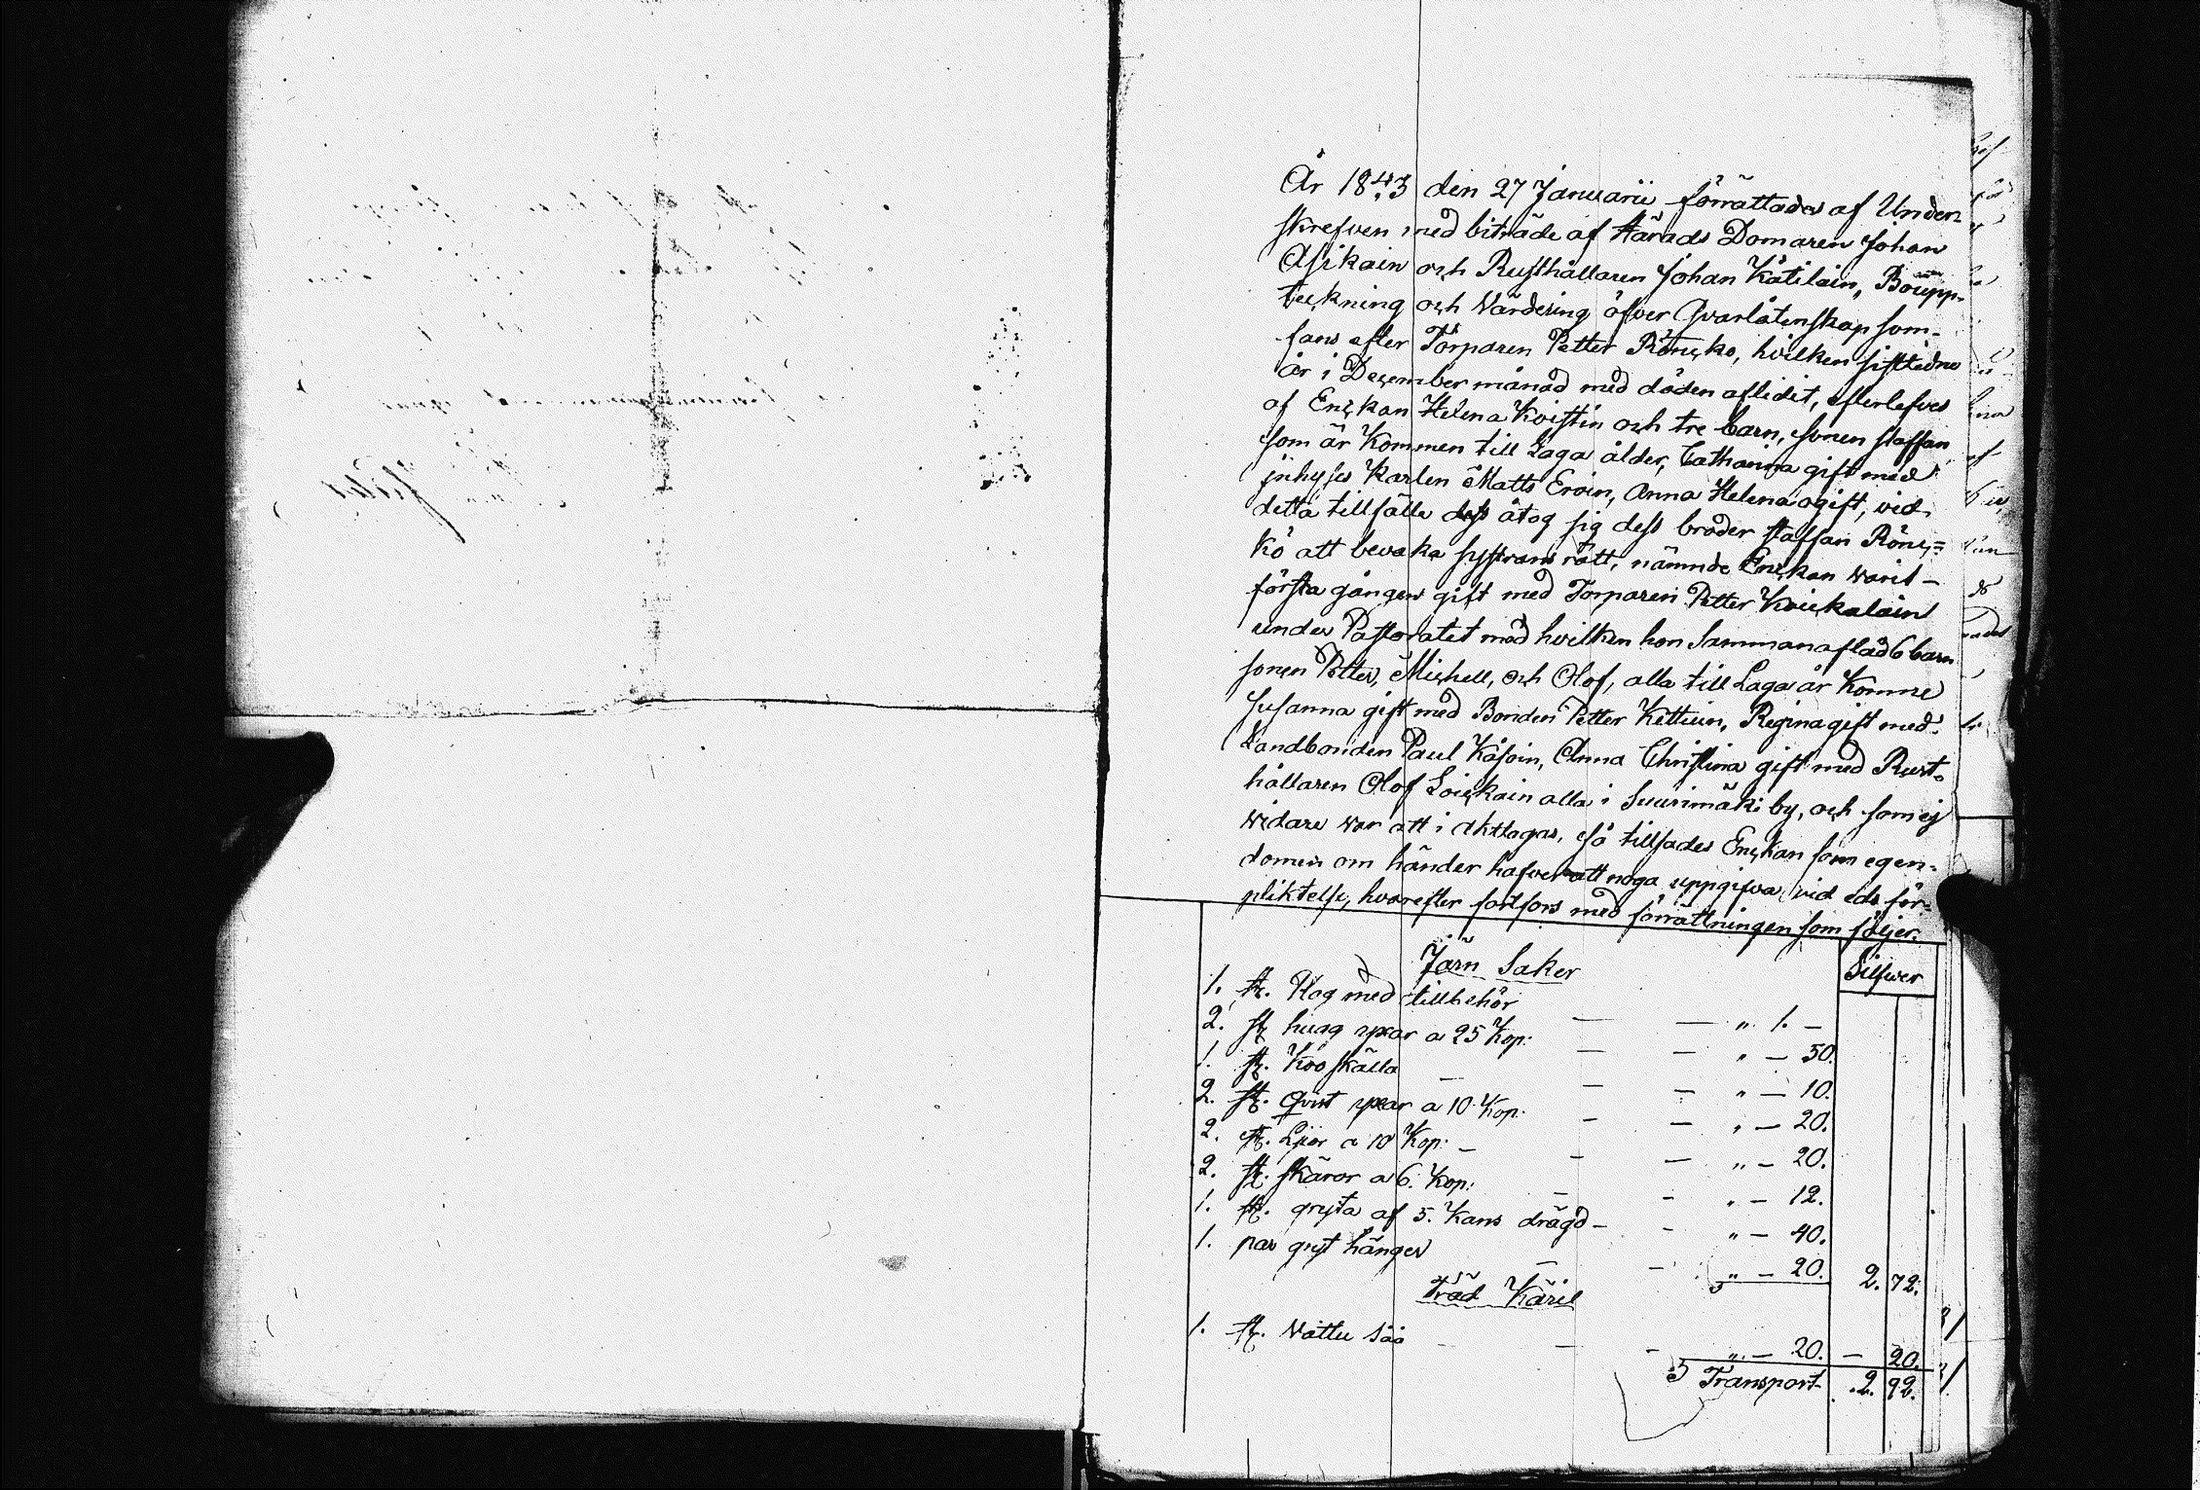 År 1843 den 27 Januarii förrättades af Under-
skrefven med biträde af Härads Domaren Johan
Asikain och Rusthållaren Johan Kåtilain, Boupp-
teckning och Värdering öfver Qvarlåtenskap som
fans efter Torparen Petter Rönkkö, hvilken sistledne
år i December månad med döden aflidit, efterlefves
af Enckan Helena Koistin och tre barn, sonen Staffan
som är Kommen till Laga ålder, Catharina gift med
jnhyses Karlen Matts Eroin, Anna Helena ogift, vid
detta tillfälle åtog sig dess broder Staffan Rönc=
kö att bevaka systrans rätt, nämnde Enckan warit
första gången gift med Torparen Petter Koickalain
under Pastoratet med hvilken hon Sammanaflad 6 barn
sonen Petter, Michell, och Olof, alla till Laga år Komne
Susanna gift med Bonden Petter Kettuin, Regina gift med
Landbonden Paul Käsoin, Anna Christina gift med Rust-
hållaren Olof Loickain alla i Suurimäki by, och som ej
widare war att i akttagas, så tillsades Enckan som egen-
domen om händer hafver att noga uppgifva vid eds för-
pliktelse, hvarefter fortfors med förrättningen som föjer.
Silfwer
Järn Saker
1. st. Plog med tillbehör — — " 1. —
2. st hugg yxar a 25 Kop: — — " — 50.
1. st. Koo skälla — — — " — 10.
2. st. Qvist yxar a 10 Kop. — — " — 20.
2. st. Liior a 10 Kop: — — — " — 20.
2. st. skäror a 6. Kop: — — " — 12.
1. st. gryta af 5. Kans drägd — — " — 40.
1. par gryt hänger — — " — 20. 2. 72.
träd Käril
1. st. Vattu såå — — — " — 20. — 20.
Transport 2. 92.